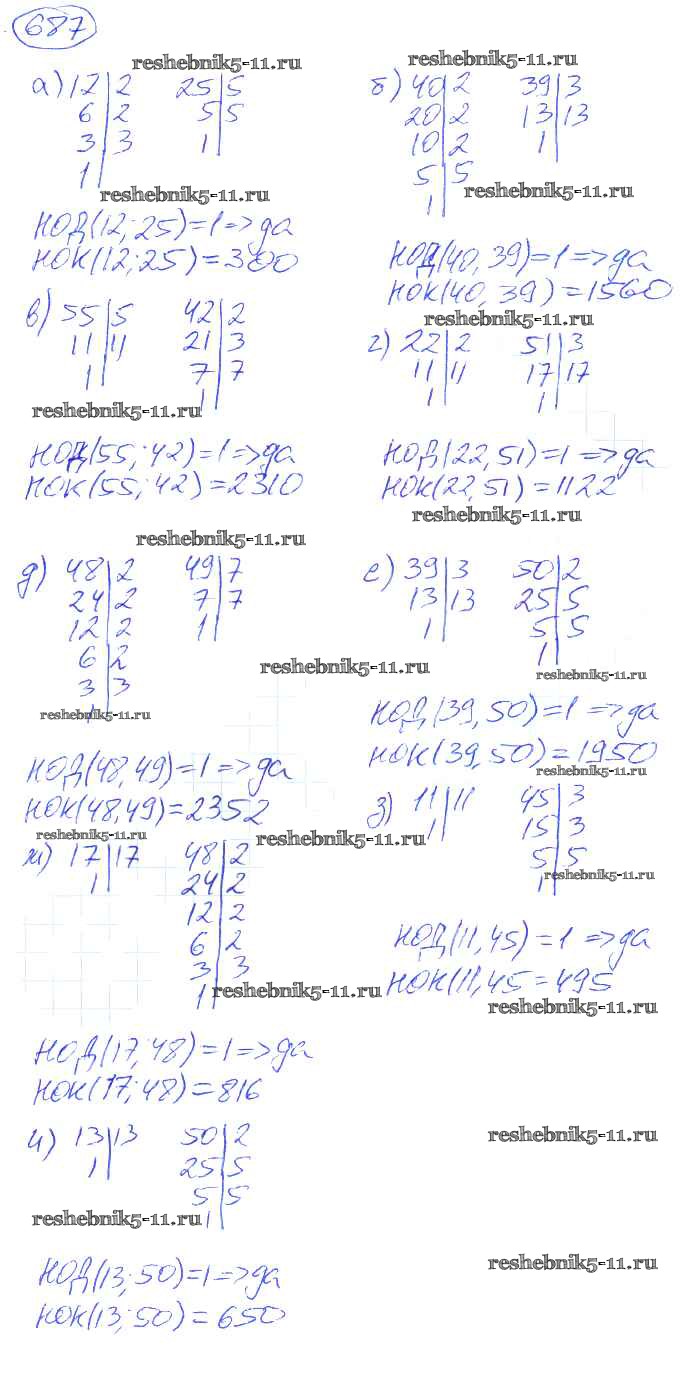 687
reshebnik5-11.ru
а) 12 | 2   25 | 5
6 | 2   5 | 5
3 | 3   1
1
reshebnik5-11.ru
НОД(12; 25) = 1 => да
НОК(12; 25) = 300
reshebnik5-11.ru
б) 40 | 2   39 | 3
20 | 2   13 | 13
10 | 2   1
5 | 5
1
reshebnik5-11.ru
НОД(40, 39) = 1 => да
НОК(40, 39) = 1560
reshebnik5-11.ru
в) 55 | 5   42 | 2
11 | 11   21 | 3
1   7 | 7
1
reshebnik5-11.ru
НОД(55; 42) = 1 => да
НОК(55; 42) = 2310
г) 22 | 2   51 | 3
11 | 11   17 | 17
1   1
НОД(22, 51) = 1 => да
НОК(22, 51) = 1122
reshebnik5-11.ru
reshebnik5-11.ru
д) 48 | 2   49 | 7
24 | 2   7 | 7
12 | 2   1
6 | 2
3 | 3
1
reshebnik5-11.ru
reshebnik5-11.ru
НОД(48, 49) = 1 => да
НОК(48, 49) = 2352
reshebnik5-11.ru
е) 39 | 3   50 | 2
13 | 13   25 | 5
1   5 | 5
1
reshebnik5-11.ru
НОД(39, 50) = 1 => да
НОК(39, 50) = 1950
reshebnik5-11.ru
ж) 17 | 17   48 | 2
1   24 | 2
12 | 2
6 | 2
3 | 3
1
reshebnik5-11.ru
reshebnik5-11.ru
НОД(17; 48) = 1 => да
НОК(17; 48) = 816
з) 11 | 11   45 | 3
1   15 | 3
5 | 5
1
reshebnik5-11.ru
НОД(11, 45) = 1 => да
НОК(11, 45 = 495
reshebnik5-11.ru
и) 13 | 13   50 | 2
1   25 | 5
5 | 5
1
reshebnik5-11.ru
reshebnik5-11.ru
НОД(13; 50) = 1 => да
НОК(13; 50) = 650
reshebnik5-11.ru